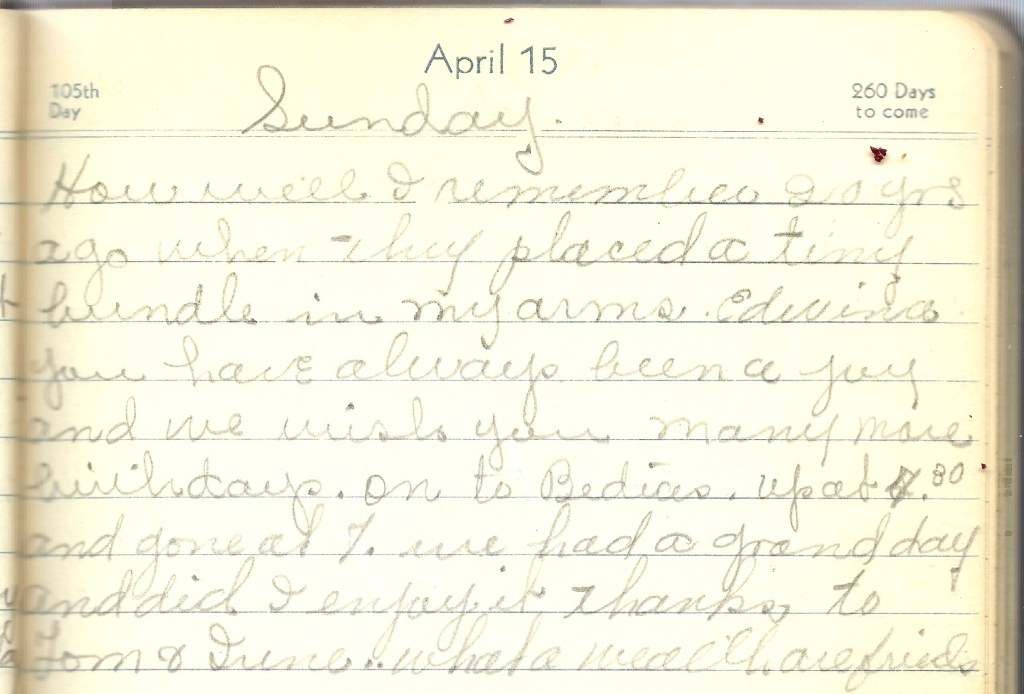 April 15
105th
Day
260 Days
to come
Sunday.
How well I remember 20 yrs
ago when they placed a tiny
bundle in my arms. Edwina
you have always been a joy
and we wish you many more
birthdays. On to Bedias. up at .30
and gone at 7. we had a grand day
and did I enjoy it thanks to
Tom & Irene.. what a wealth are friends